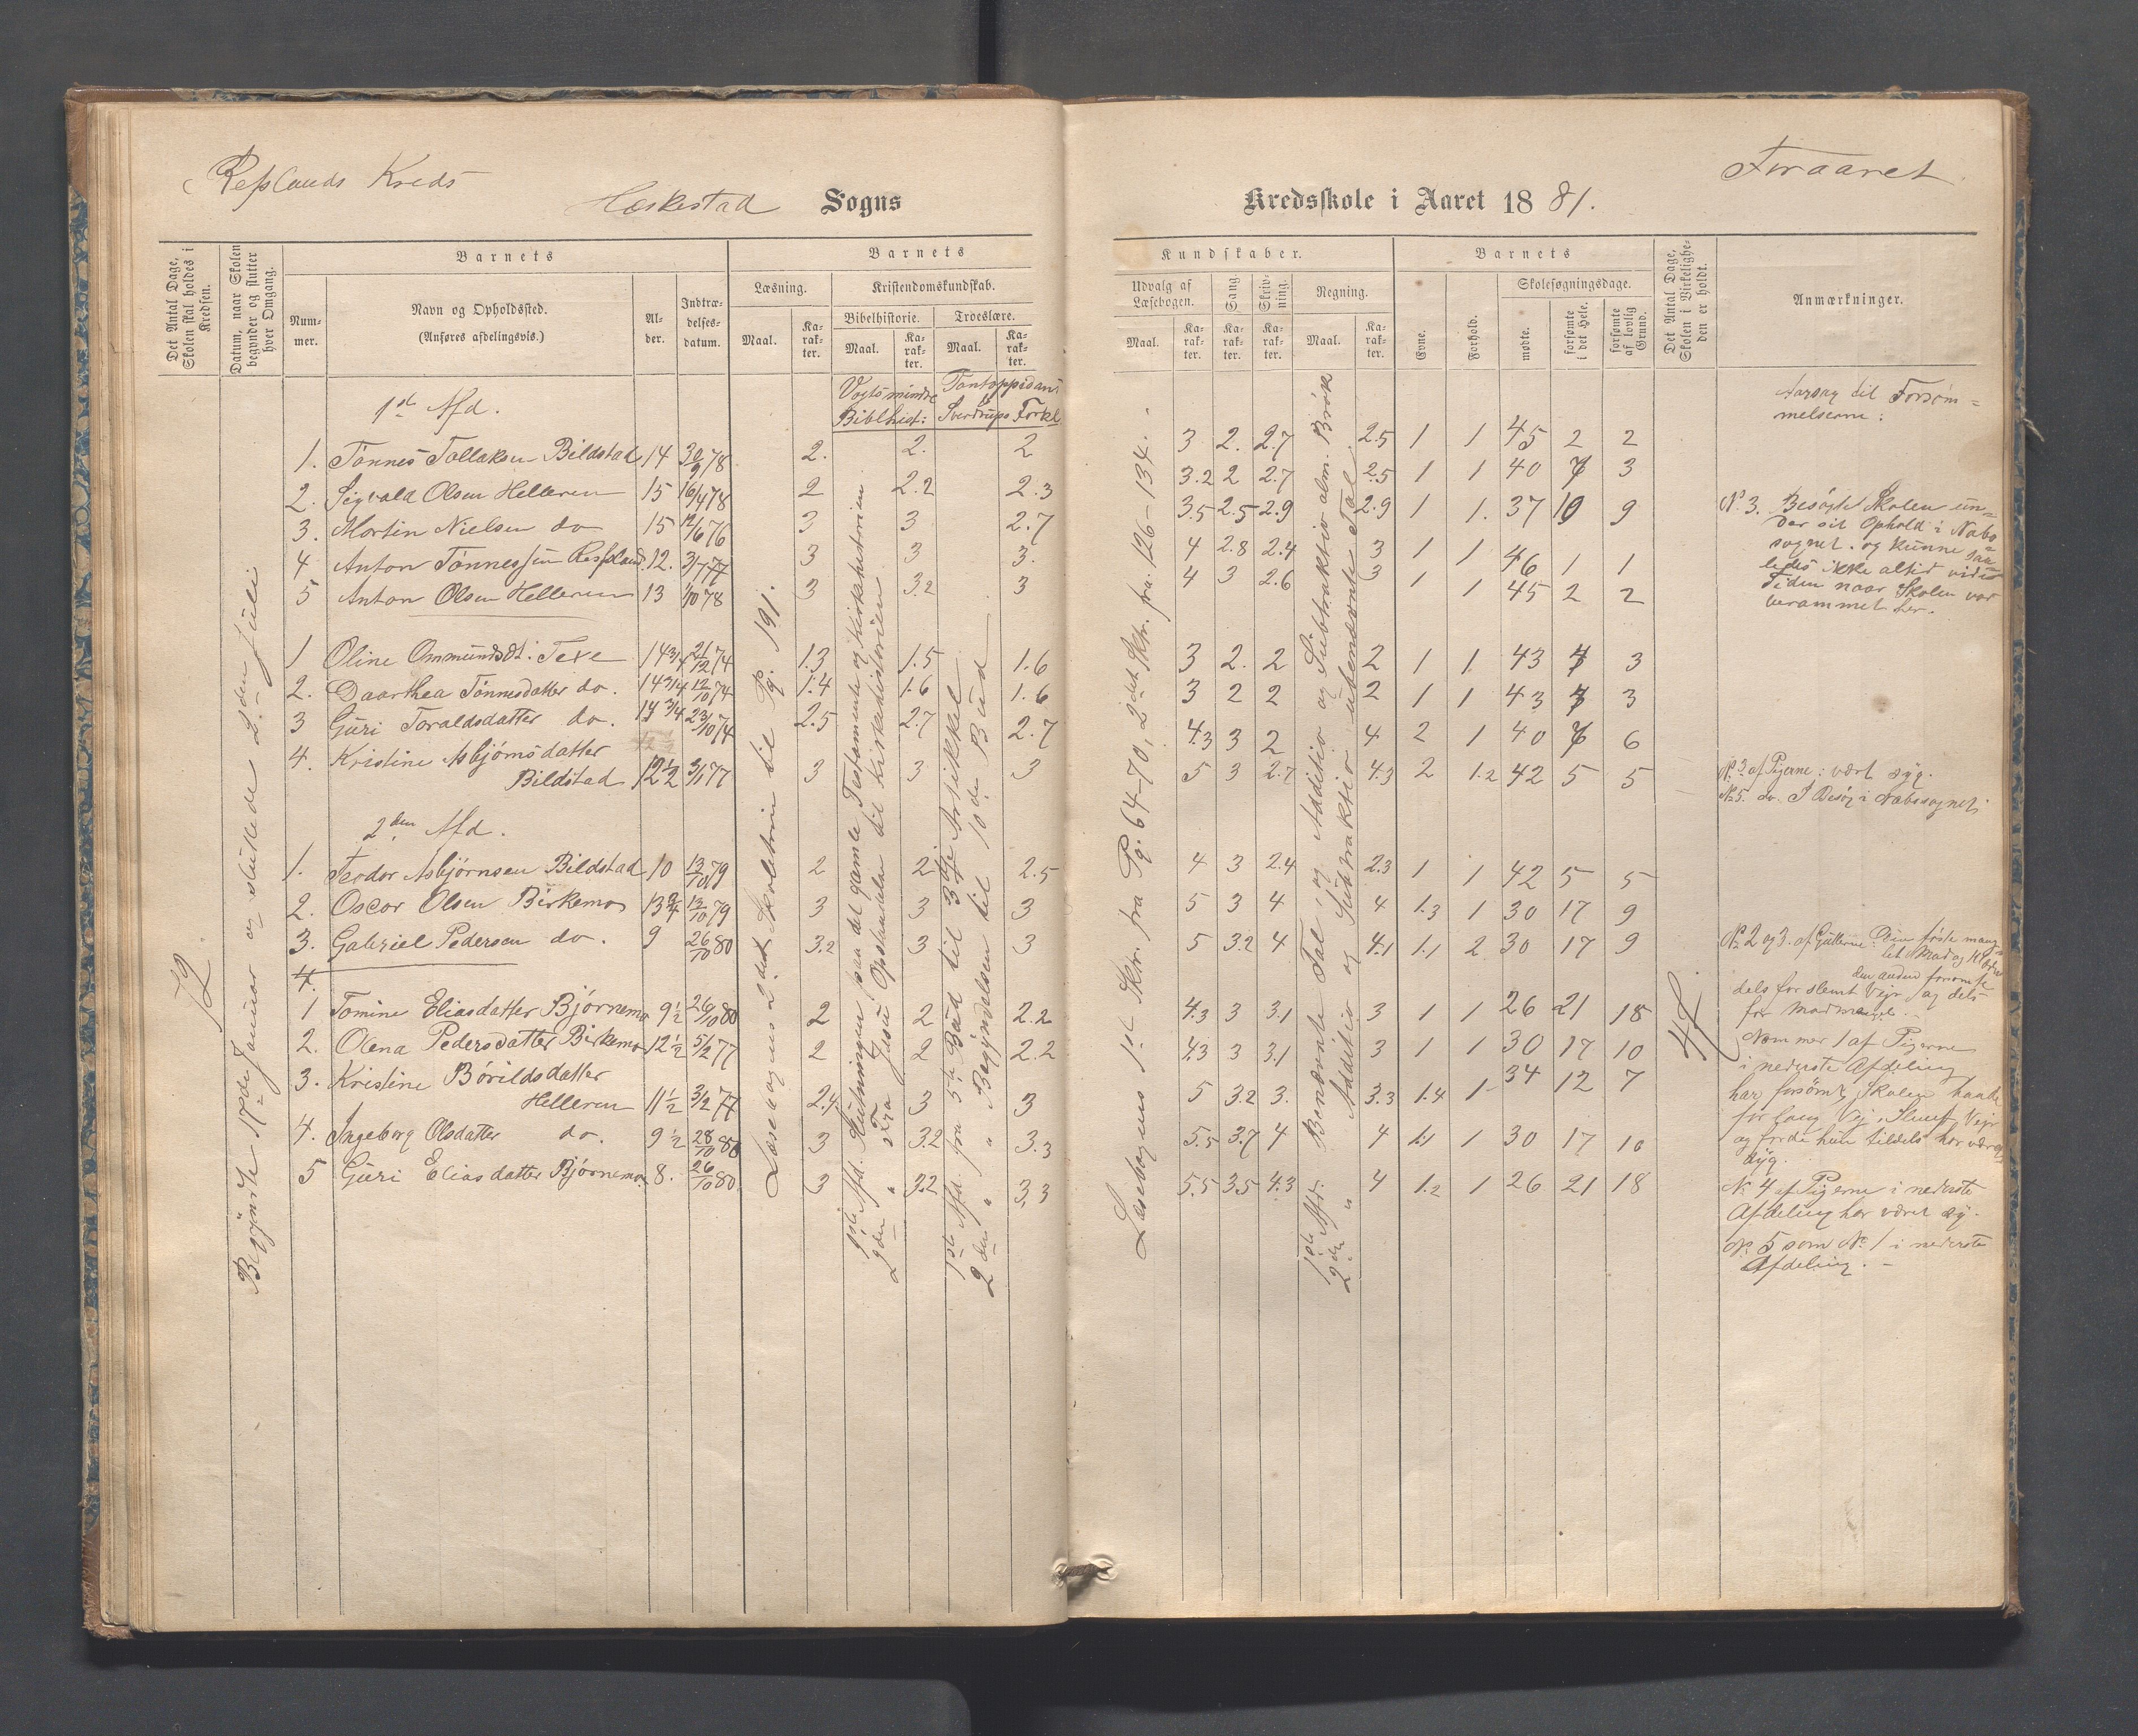 Repslands Kreds
Heskestad Sogns
Kredsskole i Aaret 1881.
Foraaret
Det Antal Dage, Skolen skal holdes i Kredsen.
Datum, naar Skolen begynder og slutter hver Omgang.
Barnets
Nummer.
Navn og Opholdssted.
(Anføres afdelingsvis.)
Alder.
Indtrædelsesdatum.
Barnets
Læsning.
Maal.
Karakter.
Kristendomskundskab.
Bibelhistorie.
Maal.
Karakter.
Troeslære.
Maal.
Karakter.
Kundskaber.
Udvalg af Læsebogen.
Maal.
Karakter.
Sang
Karakter.
Skrivning.
Karakter.
Regning.
Maal.
Karakter.
Barnets
Evne.
Forhold.
Skolesøgningsdage.
mødte.
forsømte i det Hele.
forsømte af lovlig Grund.
Det Antal Dage, Skolen i Virkeligheden er holdt.
Anmærkninger.
72
Begyndte 17de Januar og sluttede 2den Juli
Vogts mindre Biblhist:
Pontoppidans Sverdrups Forkl
Læsebogens 2det Skoletrin til Pg. 191.
1ste Afd. Slutningen paa det gamle Testamente og Kirkehistorien
2den " Fra Jesu Opstandelse til Kirkehistorien
1ste Afd. fra 5te Bud til 3die Artikkel
2den " " Begyndelsen til 10de Bud
Læsebogens 1st Sktr. fra Pg. 64-70, 2det Sktr. fra 126-134.
1ste Afd. Benævnte Tal, og Additio og Subtraktio alm. Brøk
2den " Additio og Subtraktio ubenævnte Tal.
47
1st Afd.
1. Tønnes Tollaksen Bildstad 14 30/9 78 2. 2. 2 3 2. 2.7 2.5 1 1 45 2 2
2. Sigvald Olsen Helleren 15 16/4 78 2 2.2 2.3 3.2 2 2.7 2.5 1 1 40 7 3
3. Mortin Nielsen do 15 12/6 76 3 3 2.7 3.5 2.5 2.9 2.9 1 1. 37 10 9
4 Anton Tønnessen Repsland. 12. 3/7 77 3 3 3. 4 2.8 2.4 3 1 1 46 1 1
5 Anton Olsen Helleren 13 1/10 78 3 3.2 3 4 3 2.6 3 1 1 45 2 2
1 Oline Ommundsdt. Texe 14 3/4 21/12 74 1.3 1.5 1.6 3 2. 2 2 1 1 43 4 3
2. Daarthea Tønnesdatter do. 14 3/4 12/10 74 1.4 1.6 1.6 3 2 2 2 1 1 43 3
3 Guri Toraldsdatter do. 14 3/4 23/10 74 2.5 2.7 2.7 4.3 3 2 4 2 1 40 7 6
4. Kristine Asbjørnsdatter
Bildstad 12 1/2 3/1 77 3 3 3 5 3 2.7 4.3 2 1.2 42 5 5
2den Afd.
1. Teodor Asbjørnsen Bildstad 10 13/10 79 2 2 2.5 4 3 2.4 2.3 1 1 42 5 5
2. Oscar Olsen Birkemo 13 3/4 13/10 79 3 3 3 5 3 4 4 1.3 1 30 17 9
3. Gabriel Pedersen do. 9 26/10 80 3.2 3 3 5 3.2 4 4.1 1.1 2 30 17 9
4.
1 Tomine Eliasdatter Bjørnemo 9 1/2 26/10 80 2 2 2.2 4.3 3 3.1 3 1 1 26 21 18
2. Olena Pedersdatter Birkemo 12 1/2 5/2 77 2 2 2.2 4.3 3 3.1 3 1 1 30 17 10
3. Kristine Bórildsdatter
Helleren 11 1/2 3/2 77 2.4 3 3 5 3.2 3. 3.3 1.4 1 34 12 7
4. Ingeborg Olsdatter do. 9 1/2 28/10 80 3 3.2 3.3 5.5 3.7 4 4 1.1 1 30 17 10
5 Guri Eliasdatter Bjørnemo. 8. 26/10 80. 3 3.2 3.3 5.5 3.5 4.3 4 1.2 1 26 21 18
Aarsag til Forsøm=
melserne:
No 3. Besøgte Skolen un=
der sit Ophold i Nabo=
sognet. og kunne saa=
ledes ikke altid vide
Tiden naar Skolen var
berammet her.
No 3 af Pigerne: vært syg.
No 5. do. I Besøg i Nabosognet;
No 2 og 3. af Gutterne: Den første mang=
let Mad og Klæder
den anden forsømte
dels for slemt Vejr og dels
for Madmangel.
Nommer 1 af Pigerne
i nederste Afdeling
har forsømt Skolen
for lang Vej, Slemt Vejr
og fordi hun tildels har været
syg.
No 4 af Pigerne i nederste
Afdeling har været syg.
No 5 som No 1 i nederste
Afdeling. -